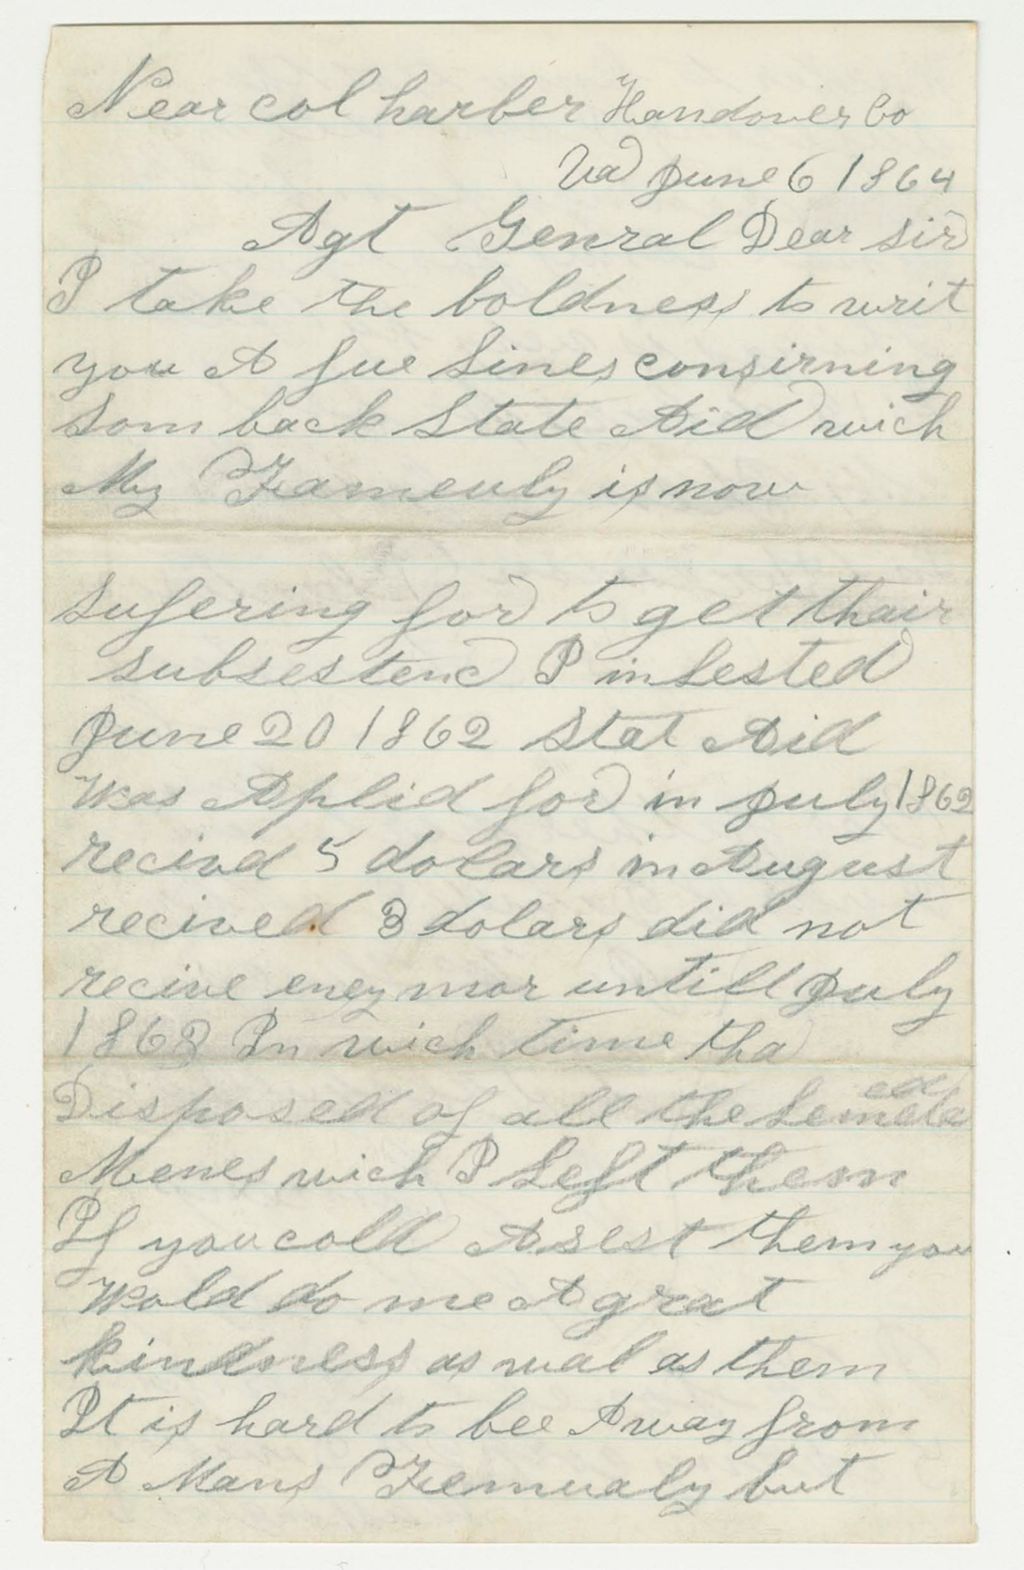 Near col harber Handover Co
Va June 6 1864
Agt Genral Dear sir
I take the boldness to writ
you A fue Lines consirning
Som back State Aid wich
My Fameuly is now
sufering for to get thair
subsestenc I inLested
June 20 1862 Stat Aid
was Aplid for in July 1862
recivd 5 dolars in August
recived 3 dolars did not
recive eney mor untill July
1863 In wich time tha
Disposed of all the
Menes wich I Left them
If you cold Asest them you
wold do me A grat
kindness as wal as them
It is hard to bee Away from
A Mans Femualy but